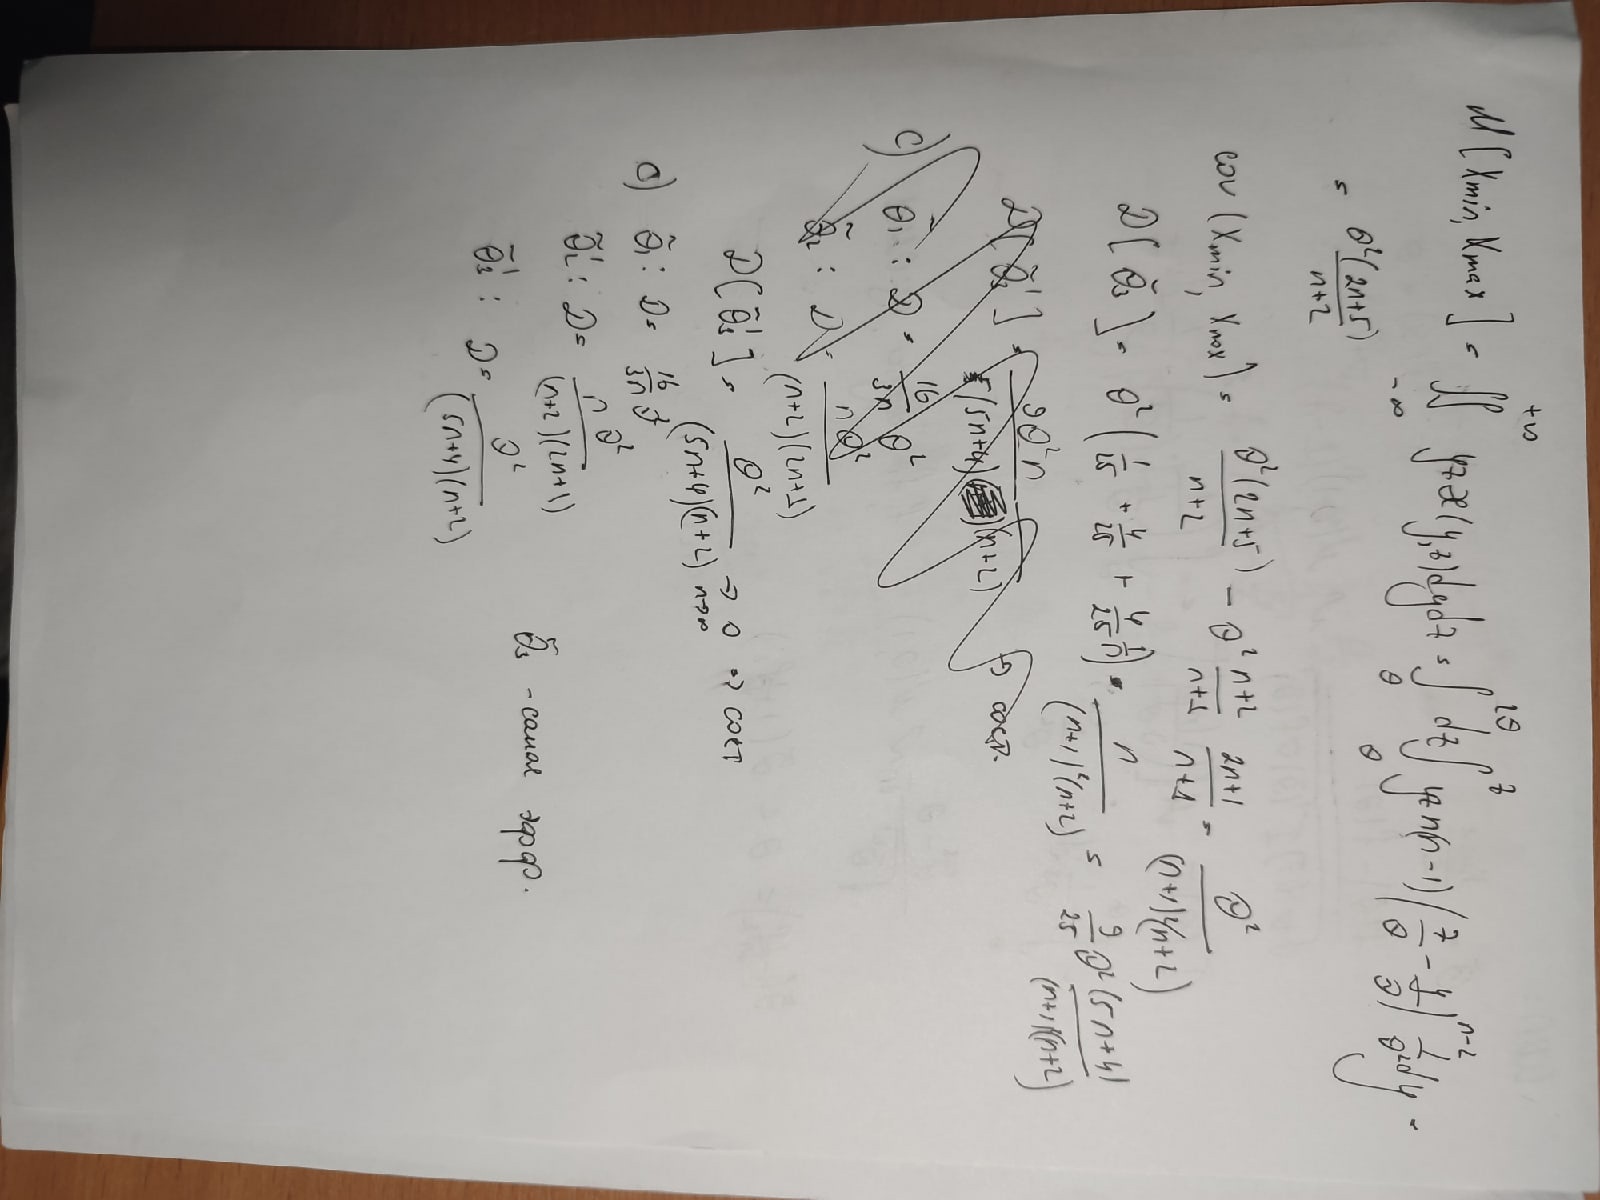 M[Xmin, Xmax] = ∬_{-∞}^{+∞} yz æ(y,z)dydz = ∫_θ^{2θ} dz ∫_θ^z yz n(n-1) (z/θ - y/θ)^{n-2} 1/θ² dy =
= θ²(2n+5)/(n+2)
cov (Xmin, Xmax) = θ²(2n+5)/(n+2) - θ² (n+2)/(n+1) (2n+1)/(n+1) = θ²/((n+1)²(n+2))
D[θ̃₃] = θ² (1/25 + 4/25 + 4/25 1/n) · n/((n+1)²(n+2)) = 9/25 θ² (5n+4)/((n+1)(n+2))
D[θ̃₃'] = 9θ²n/(5(5n+4)(n+2)) → сост.
c) θ̃₁: D = 16/3n θ²
θ̃₂: D = nθ²/((n+2)(2n+1))
D[θ̃₃'] = θ²/((5n+4)(n+2)) → 0 n→∞ ⇒ сост
c) θ̃₁: D = 16/3n θ²
θ̃₂': D = nθ²/((n+2)(2n+1))
θ̃₃ - самая эфф.
θ̃₃': D = θ²/((5n+4)(n+2))